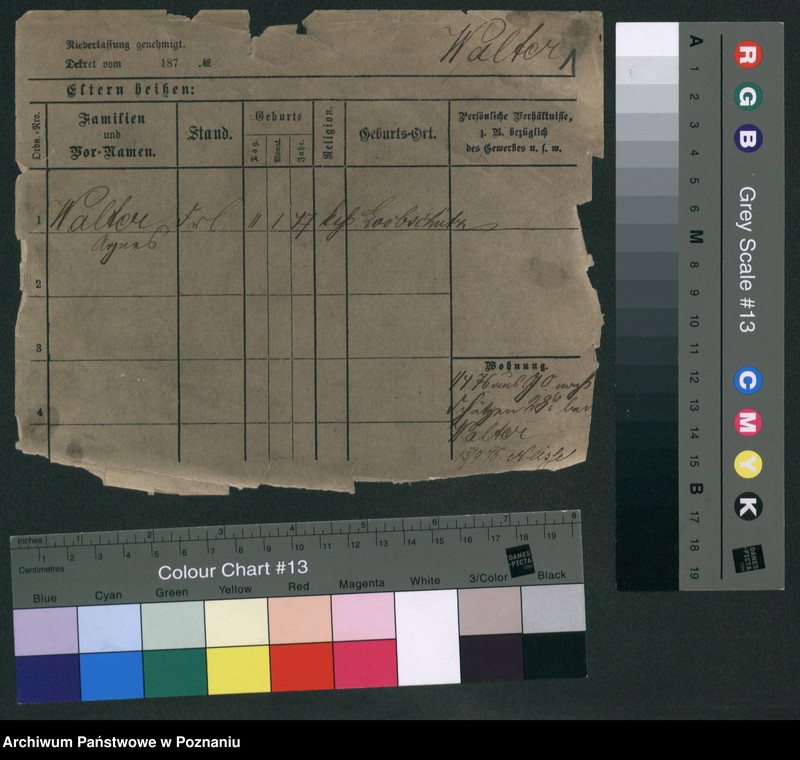 Niederlassung genehmigt.
Dekret vom 187 №
Walter
Eltern heißen:
Ordn.-Nro.
Familien
und
Vor-Namen.
Stand.
Geburts
Tag.
Monat.
Jahr.
Religion.
Geburts-Ort.
Persönliche Verhältnisse,
z. B. bezüglich
des Gewerbes u. s. w.
1 Walter Frl 11 1 47 Loobschutz
Agnes
2
3
4
Wohnung.
1/4 76 aus
28 bei
Walter
Neisse
A 1 2 3 4 5 6 M 8 9 10 11 12 13 14 15 B 17 18 19
R G B
Grey Scale #13
C M Y K
DANES
-PICTA
.COM
Inches 1 2 3 4 5 6 7 8
Centimetres 1 2 3 4 5 6 7 8 9 10 11 12 13 14 15 16 17 18 19
Colour Chart #13
DANES
-PICTA
.COM
Blue Cyan Green Yellow Red Magenta White 3/Color Black
Archiwum Państwowe w Poznaniu